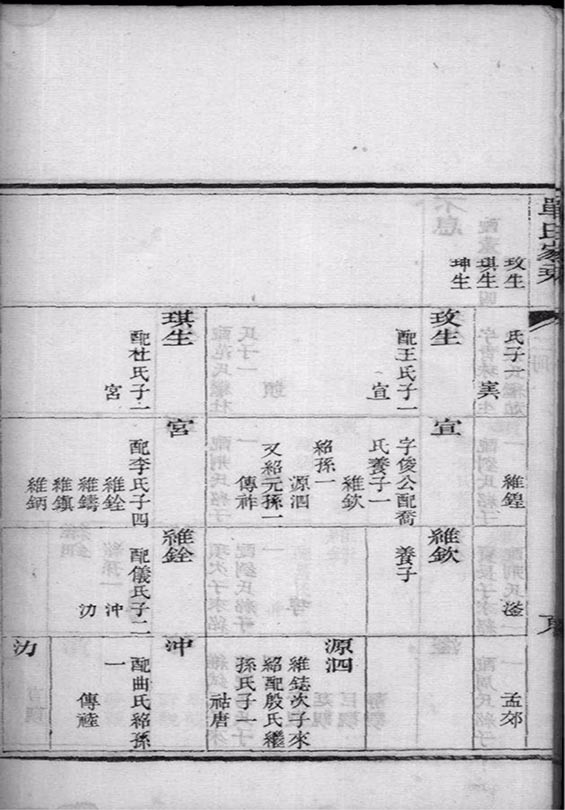 單氏家乘
玫生
琪生
珅生
氏子一
寘
玫生
配王氏子一
宣
琪生
配杜氏子一
宮
維鍠
宣
字俊公配喬
氏養子一
維欽
紹孫一
源泗
又紹元孫一
傳祥
宮
配李氏子四
維銓
維鑄
維鎮
維鈵
滋
維欽
養子
維銓
配儀氏子二
沖
沕
孟郊
源泗
維鋕次子來
紹配殷氏繼
孫氏子一
祜唐
沖
配曲氏紹孫
一
傳稑
沕